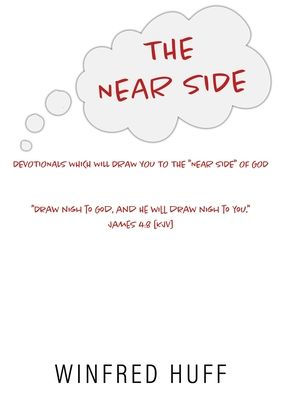 THE
NEAR SIDE
DEVOTIONALS WHICH WILL DRAW YOU TO THE "NEAR SIDE" OF GOD
"DRAW NIGH TO GOD, AND HE WILL DRAW NIGH TO YOU."
JAMES 4:8 [KJV]
WINFRED HUFF